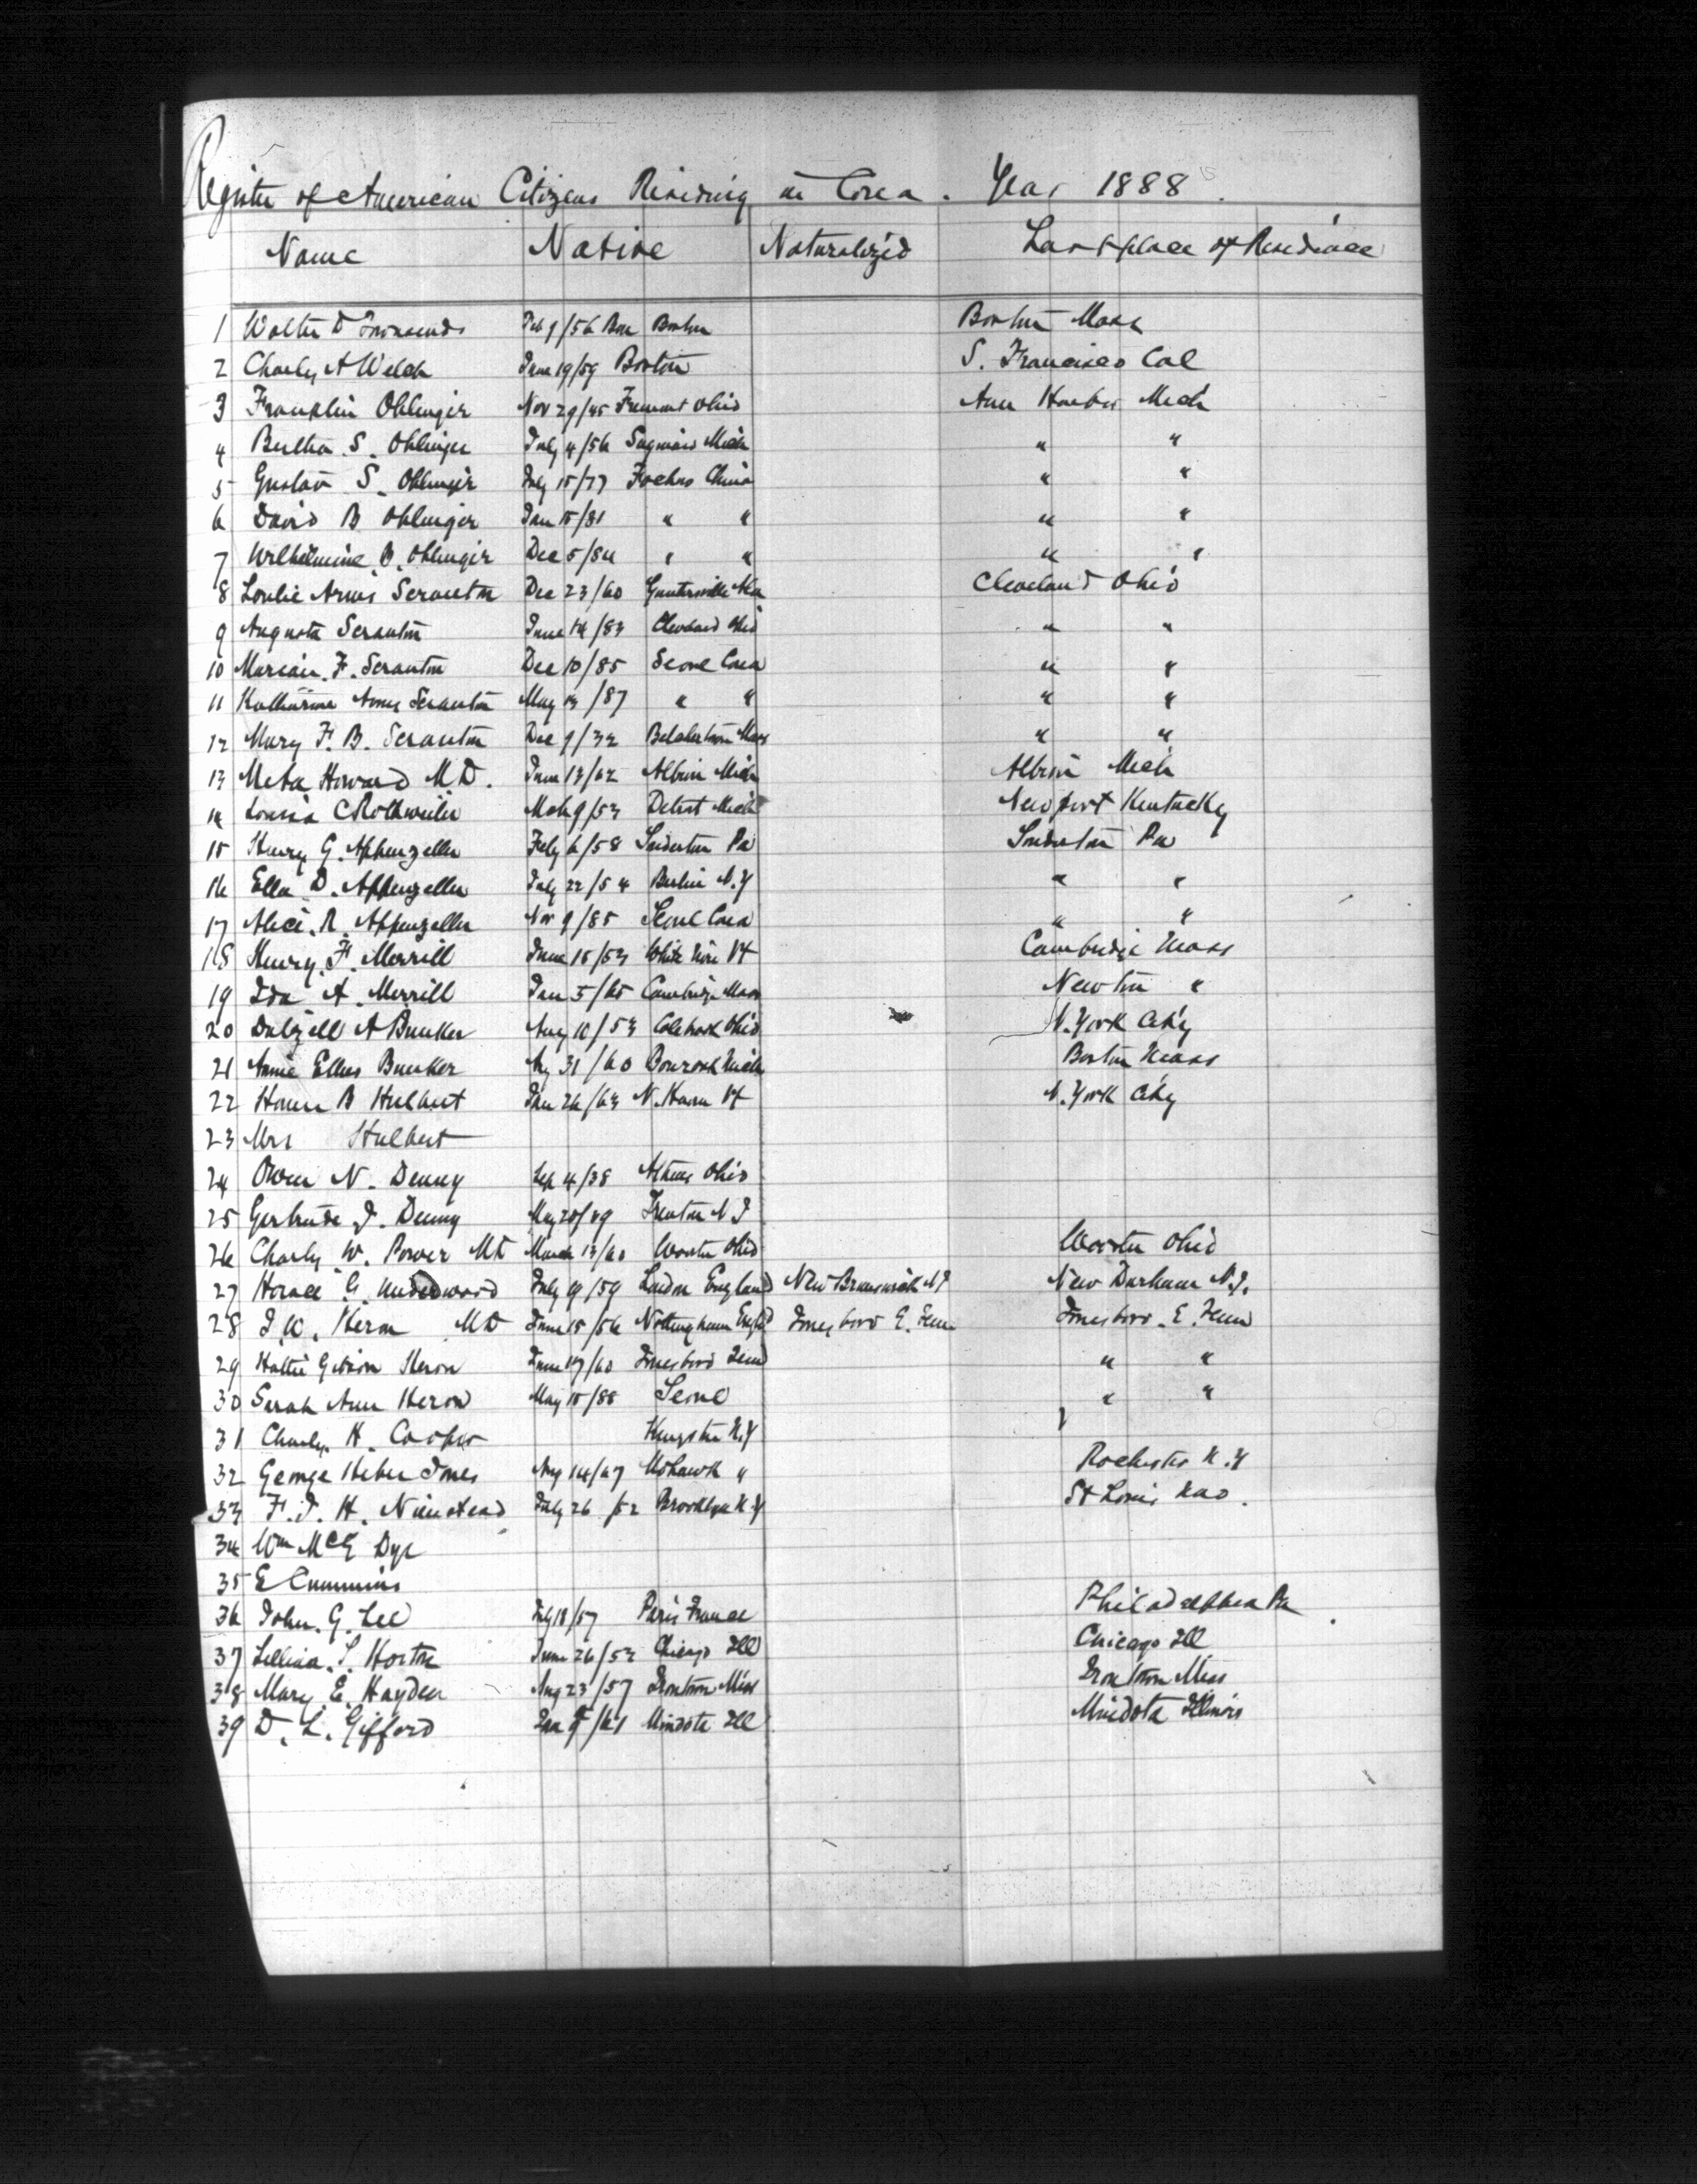 Register of American Citizens Residing in Corea. Year 1888
Name Native Naturalized Last place of Residence
1 Walter D Townsend Feb 9/56 Boston Boston Mass
2 Charly A Welch June 19/59 Boston S. Francisco Cal
3 Franklin Ohlinger Nov 29/45 Fremont Ohio Ann Harbor Mich
4 Bertha S. Ohlinger July 4/56 Saginaw Mich " "
5 Gustav S. Ohlinger July 15/77 Foochow China " "
6 David B Ohlinger Jan 15/81 " " " "
7 Wilhelmine B. Ohlinger Dec 5/84 " " " "
8 Loulie Arms Scranton Dec 23/60 Cleveland Ohio
9 Augusta Scranton June 14/83 Cleveland Ohio " "
10 Marian F. Scranton Dec 10/85 Seoul Corea " "
11 Katharine Arms Scranton May /87 " " " "
12 Mary F. B. Scranton Dec 9/32 Belchertown Mass " "
13 Meta Howard M D. June 13/62 Albion Mich Albion Mich
14 Louisa C Rothweiler Mch 9/53 Detroit Mich Newport Kentucky
15 Henry G. Appenzeller Feby 6/58 Souderton Pa Souderton Pa
16 Ella D. Appenzeller July 22/54 Berlin N.Y " "
17 Alice R. Appenzeller Nov 9/85 Seoul Corea " "
18 Henry F. Merrill June 15/53 White River Vt Cambridge Mass
19 Ida A. Merrill Jan 5/65 Cambridge Mass Newton "
20 Dalzell A Bunker Aug 10/53 Colebrook Ohio N. York City
21 Annie Ellers Bunker Ag 31/60 Mich Boston Mass
22 Homer B Hulbert Jan 26/63 N. Haven Vt N. York City
23 Mrs Hulbert
24 Owen N. Denny Sep 4/38 Athens Ohio
25 Gertrude J. Denny May Trenton N J
26 Charly W. Power MD March 13/60 Wooster Ohio Wooster Ohio
27 Horace G. Underwood July 19/59 London England New Brunswick NJ New Durham N.J.
28 J. W. Heron MD June 15/56 Nottingham Engld Jonesboro E. Tenn Jonesboro. E. Tenn
29 Hattie Gibson Heron June /60 Jonesboro Tenn " "
30 Sarah Ann Heron May Seoul " "
31 Charly. H. Cooper Kingston N.Y
32 George Heber Jones Aug 14/67 Mohawk " Rochester N.Y
33 F. J. H. Nienstead July 26/52 Brooklyn N.Y St Louis Mo.
34 Wm McE Dye
35 E Cummins
36 John. G. Lee July 18/57 Paris France Philadelphia Pa
37 Lillias. S. Horton June 26/52 Chicago Ill Chicago Ill
38 Mary E. Hayden Aug 23/57 Irontown Miss Irontown Miss
39 D. L. Gifford Jan /61 Mindota Ill Mindota Illinois